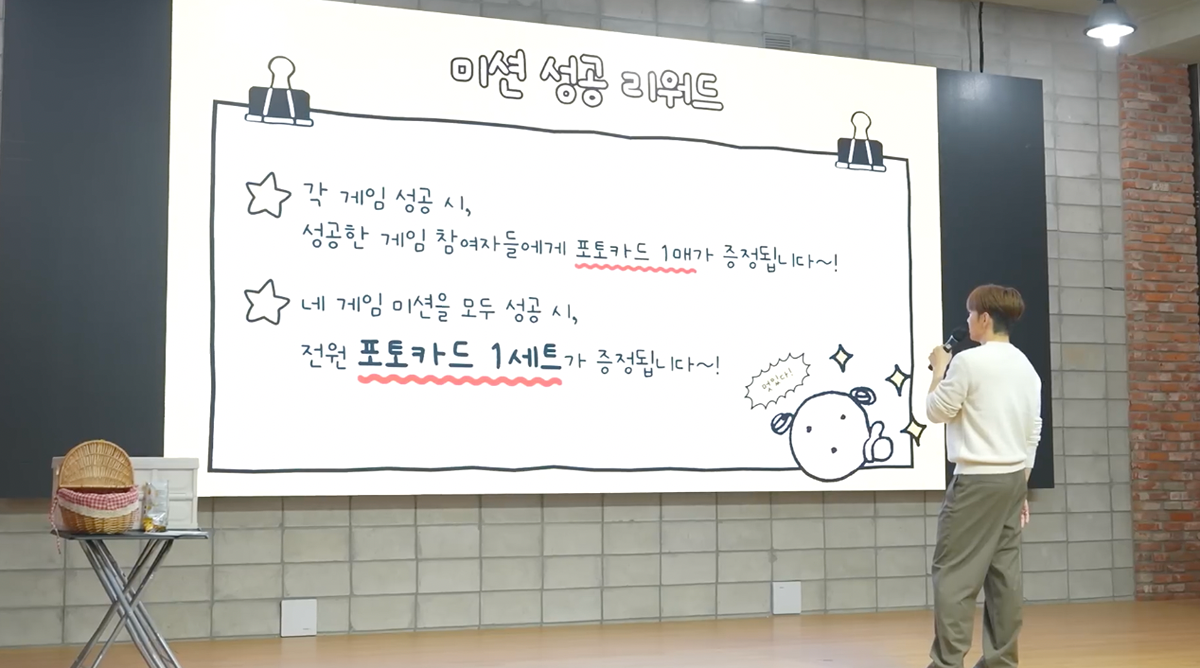 미션 성공 리워드
각 게임 성공 시,
성공한 게임 참여자들에게 포토카드 1매가 증정됩니다~!
네 게임 미션을 모두 성공 시,
전원 포토카드 1세트가 증정됩니다~!
멋있다!